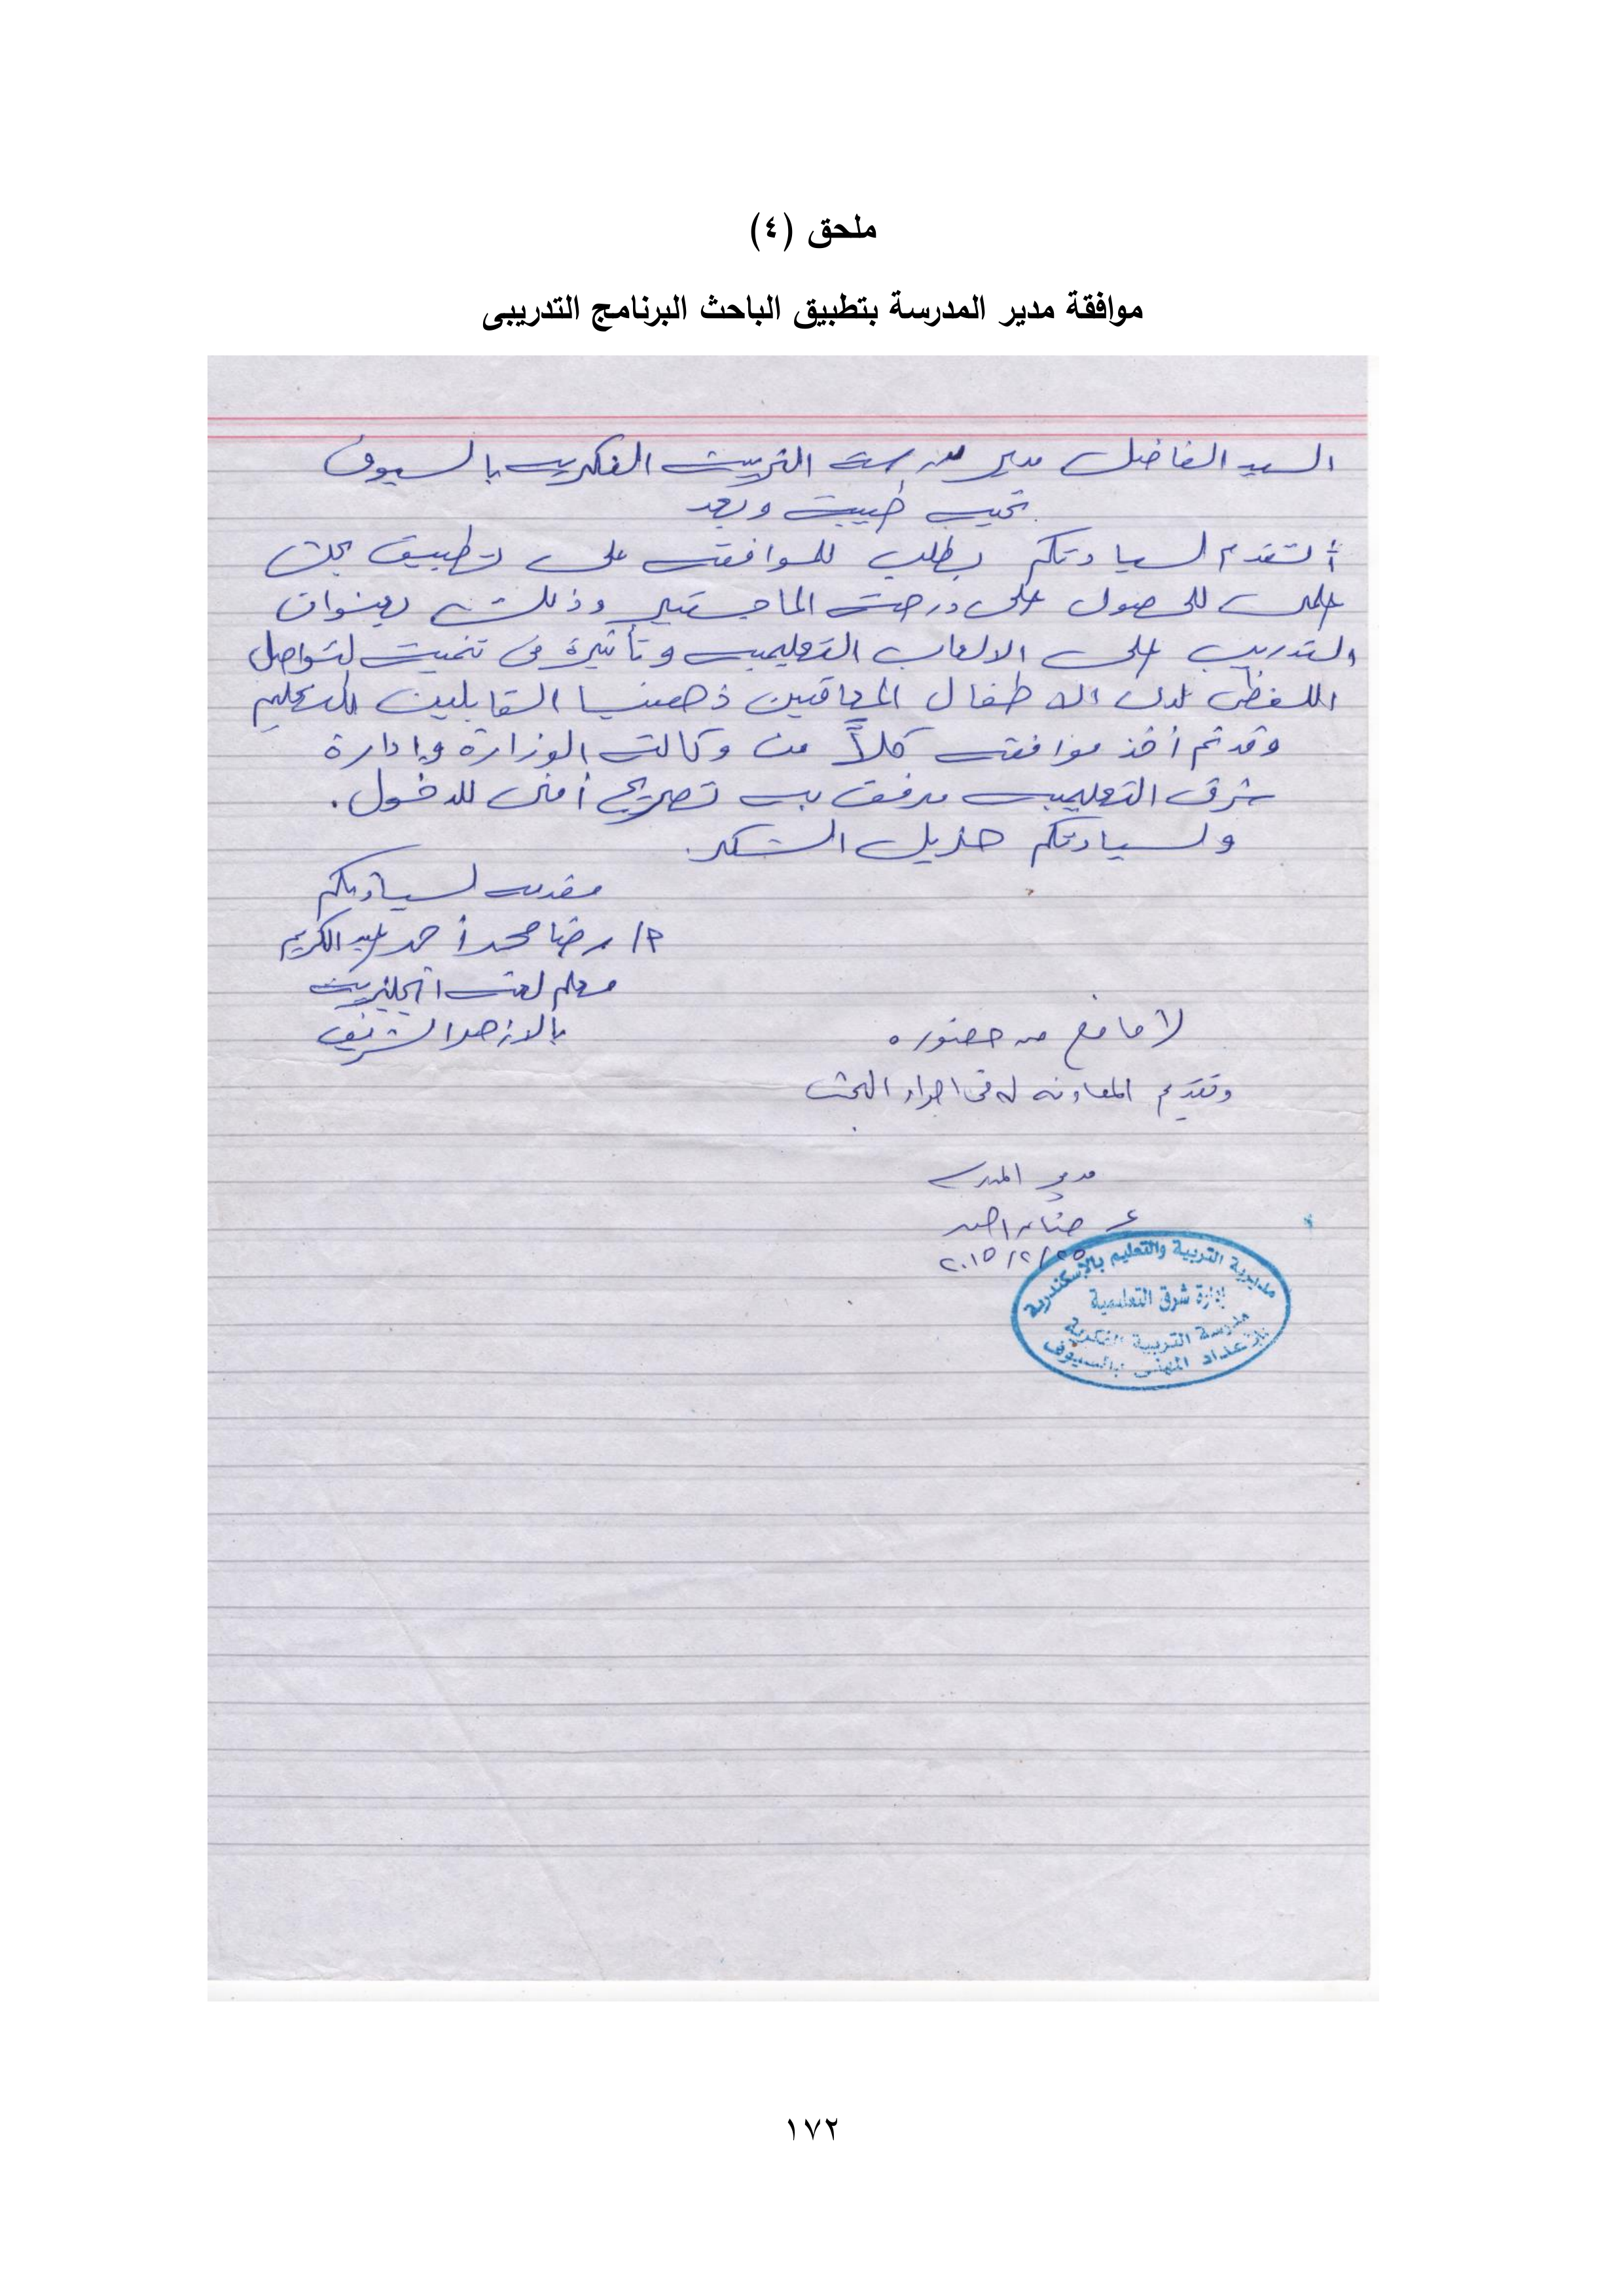 ملحق (٤)
موافقة مدير المدرسة بتطبيق الباحث البرنامج التدريبى
السيد الفاضل مدير مدرسة التربية الفكرية بالسيوف
تحية طيبة وبعد
أتقدم لسيادتكم بطلب للموافقة على تطبيق بحث
علمى للحصول على درجة الماجستير وذلك بعنوان
التدريب على الالعاب التعليمية وتأثيرة فى تنمية التواصل
اللفظى لدى الاطفال المعاقين ذهنيا القابلين للتعليم
وقد تم أخذ موافقة كلاً من وكالة الوزارة وإدارة
شرق التعليمية مرفق به تصريح أمنى للدخول.
ولسيادتكم جزيل الشكر.
مقدمه لسيادتكم
م/ رضا محمد أحمد عبد الكريم
معلم لغة انجليزية
بالازهر الشريف
لا مانع من حضوره
وتقديم المعاونه له فى اجراء البحث
مدير المدرسة
٢٠١٥/٢/٢٥
مديرية التربية والتعليم بالإسكندرية
إدارة شرق التعليمية
مدرسة التربية الفكرية
المهنى بالسيوف
١٧٢